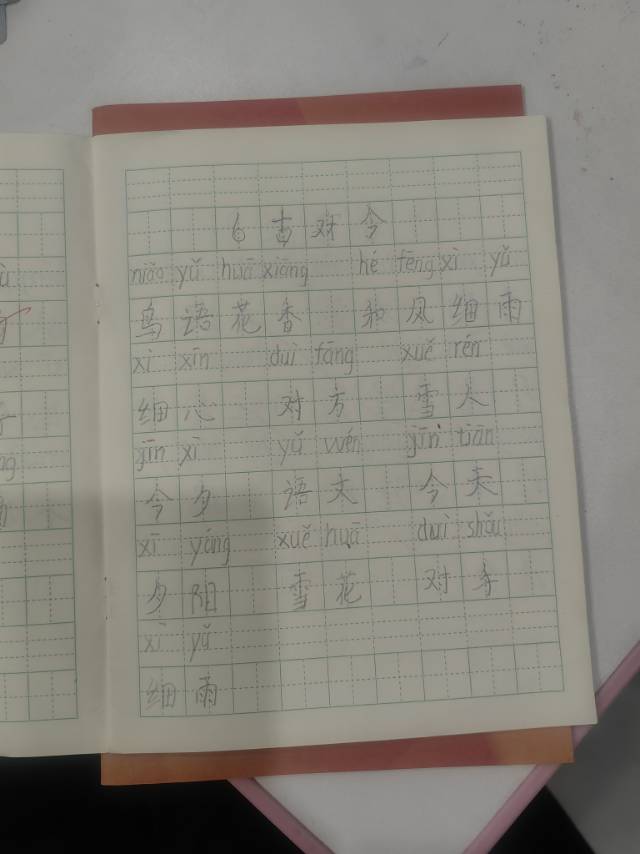 6 古对今
niǎo yǔ huā xiāng hé fēng xì yǔ
鸟语花香 和风细雨
xì xīn duì fāng xuě rén
细心 对方 雪人
jīn xī yǔ wén jīn tiān
今夕 语文 今天
xī yáng xuě huā duì shǒu
夕阳 雪花 对手
xì yǔ
细雨